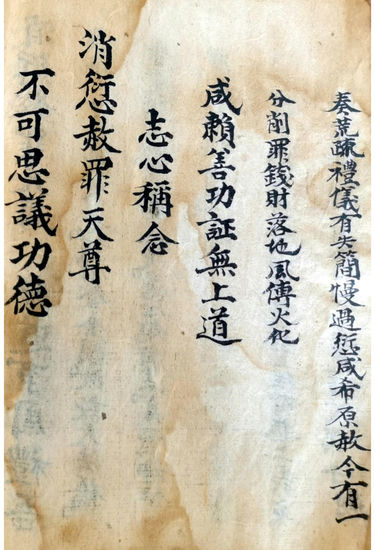 奏荒疏禮儀有失簡慢過愆咸希原赦今有一
分削罪錢財落地風傳火化
咸賴善功証無上道
志心稱念
消愆赦罪天尊
不可思議功德